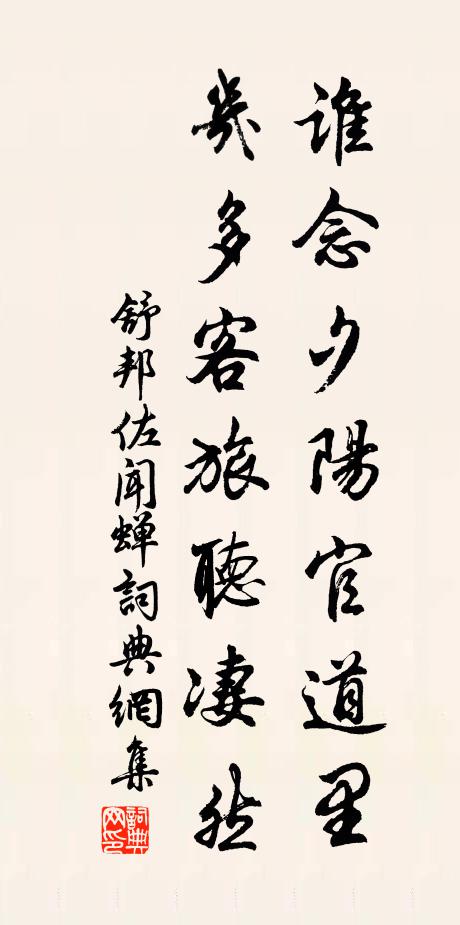 誰念夕陽官道里
幾多客旅聽凄然
舒邦佐聞蟬詞典網集
詞典网印